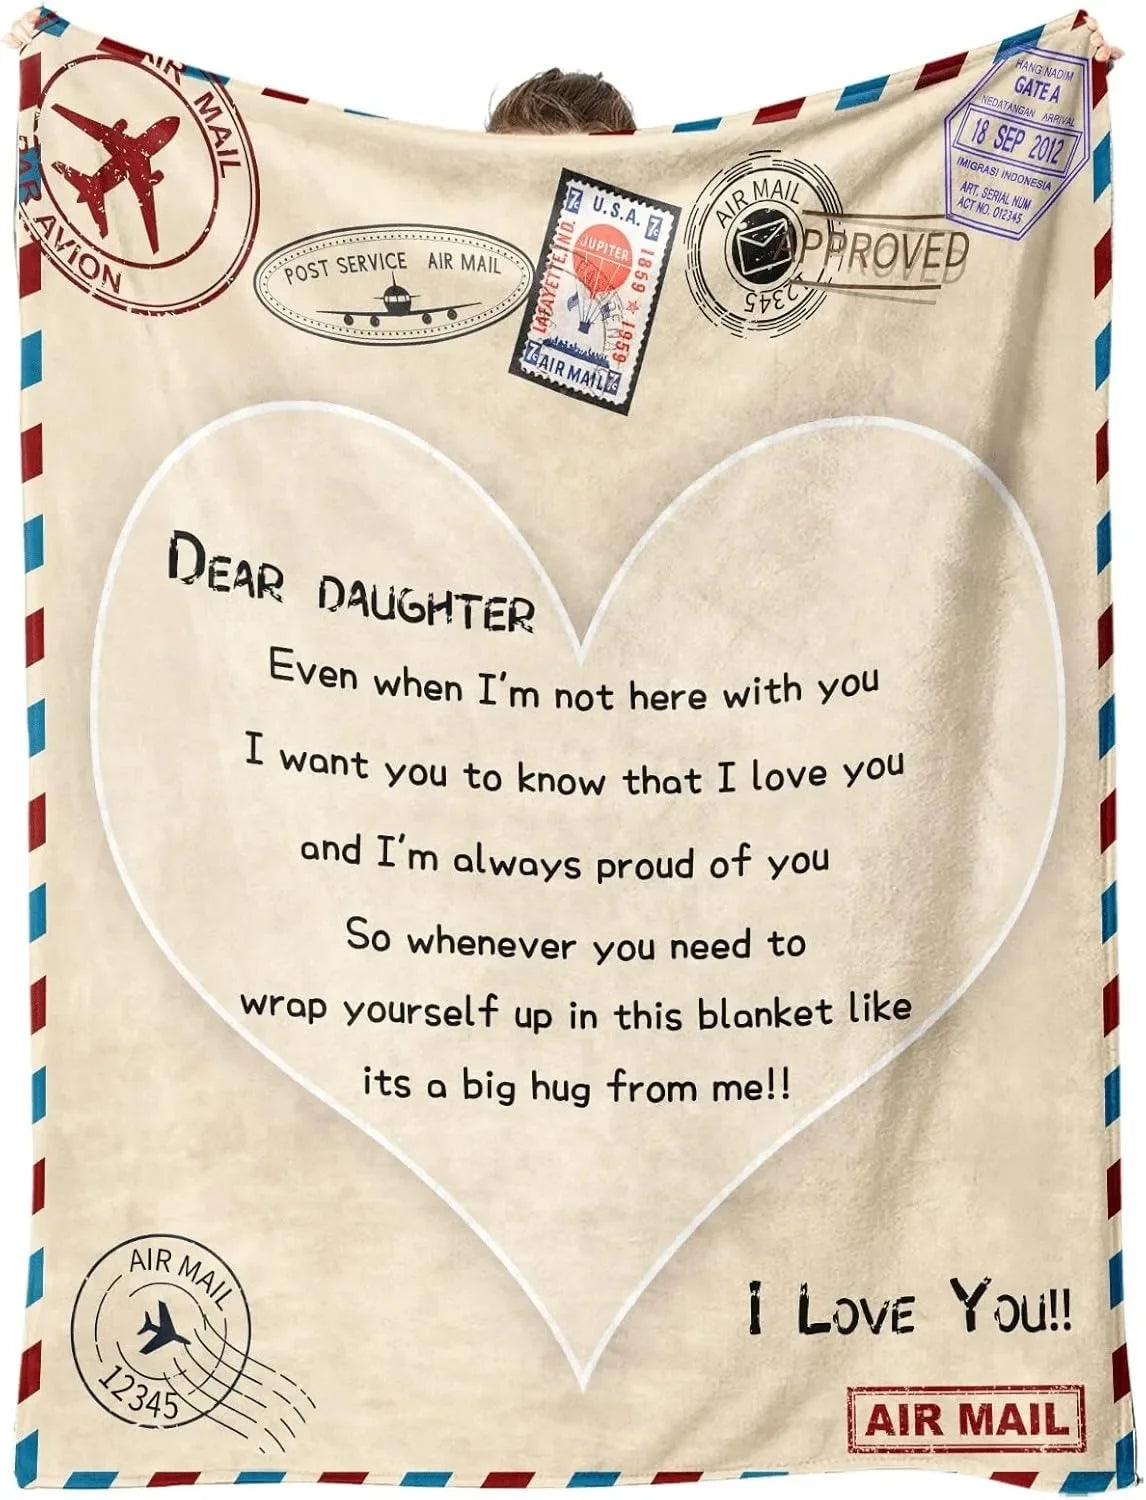 AIR MAIL
PAR AVION
POST SERVICE AIR MAIL
7c U.S.A. 7c
JUPITER
LAFAYETTE, IND.
1859 ★ 1959
7c AIR MAIL 7c
AIR MAIL
12345
APPROVED
HANG NADIM
GATE A
NEDATANGAN ARRIVAL
18 SEP 2012
IMIGRASI INDONESIA
ART. SERIAL NUM
ACT NO. 012345
DEAR DAUGHTER
Even when I'm not here with you
I want you to know that I love you
and I'm always proud of you
So whenever you need to
wrap yourself up in this blanket like
its a big hug from me!!
AIR MAIL
12345
I LOVE YOU!!
AIR MAIL